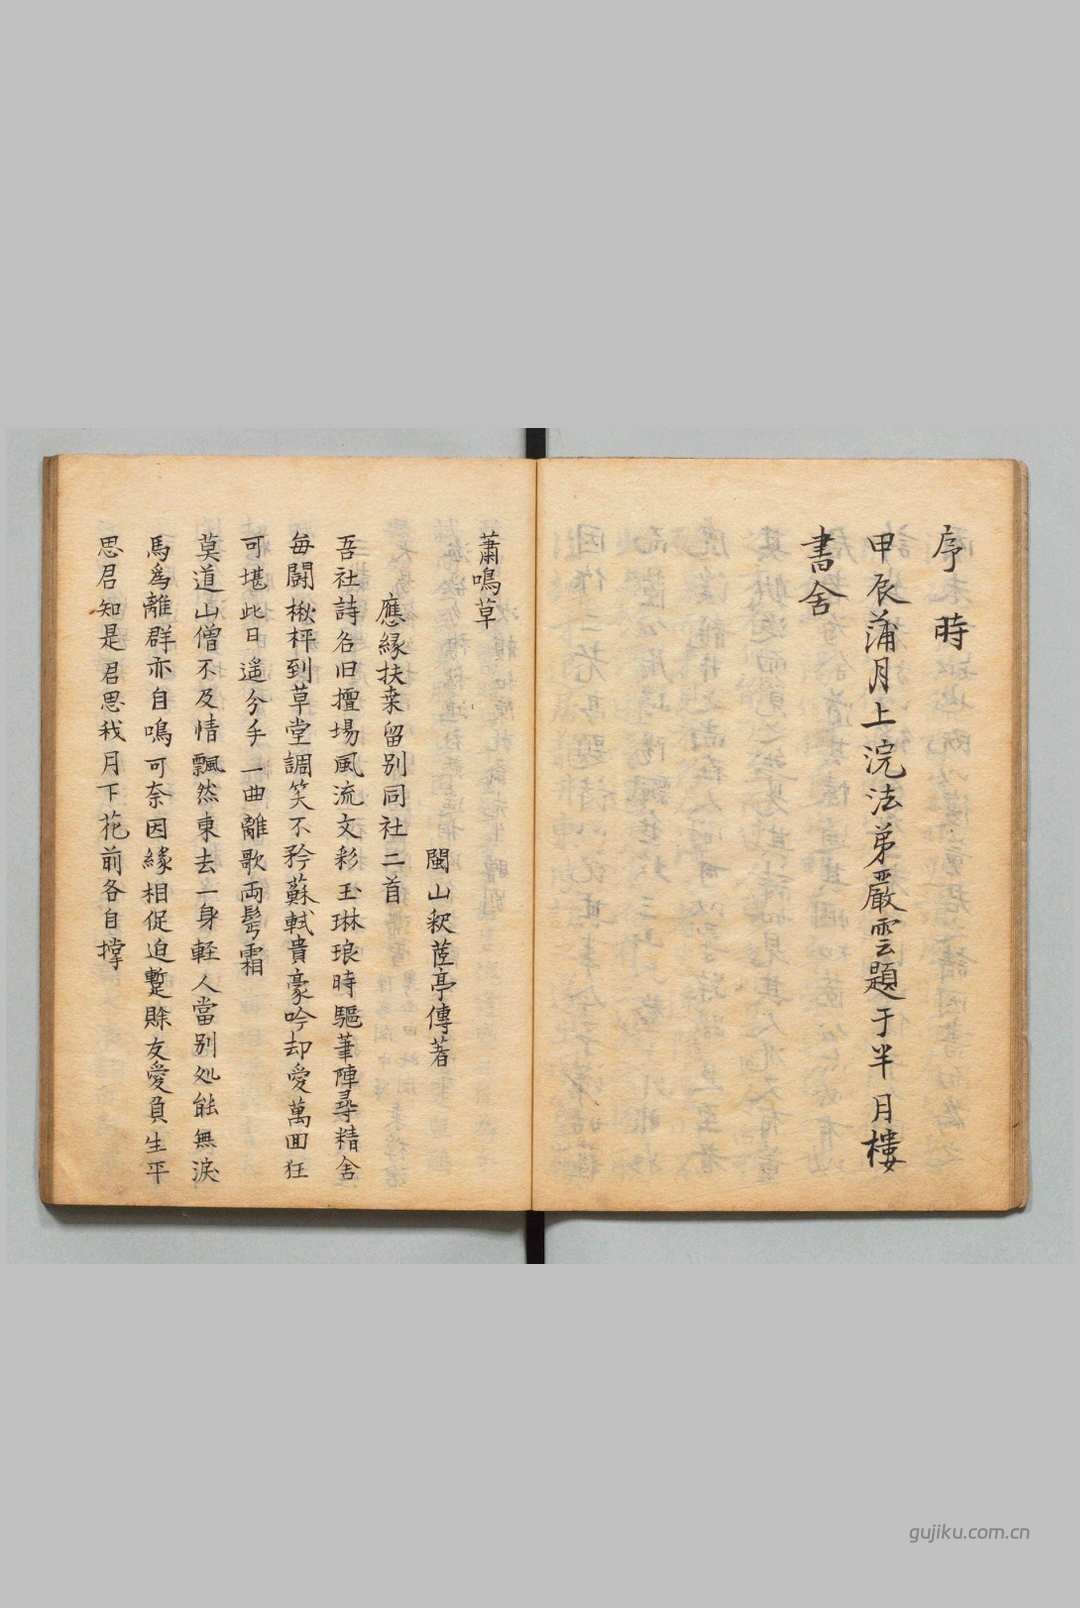 序 時
甲辰蒲月上浣法弟嚴雲題于半月樓
書舍
蕭鳴草
閩山釈莐亭傳著
應縁扶桒留別同社二首
吾社詩名旧擅場風流文彩玉琳琅時驅筆陣尋精舍
每闘楸枰到草堂調笑不矜蘇軾貴豪吟却愛萬回狂
可堪此日遥分手一曲離歌両髩霜
莫道山僧不及情飄然東去一身軽人當别処能無淚
馬爲離群亦自鳴可奈因緣相促迫蹔賖友愛負生平
思君知是君思我月下花前各自撑
gujiku.com.cn